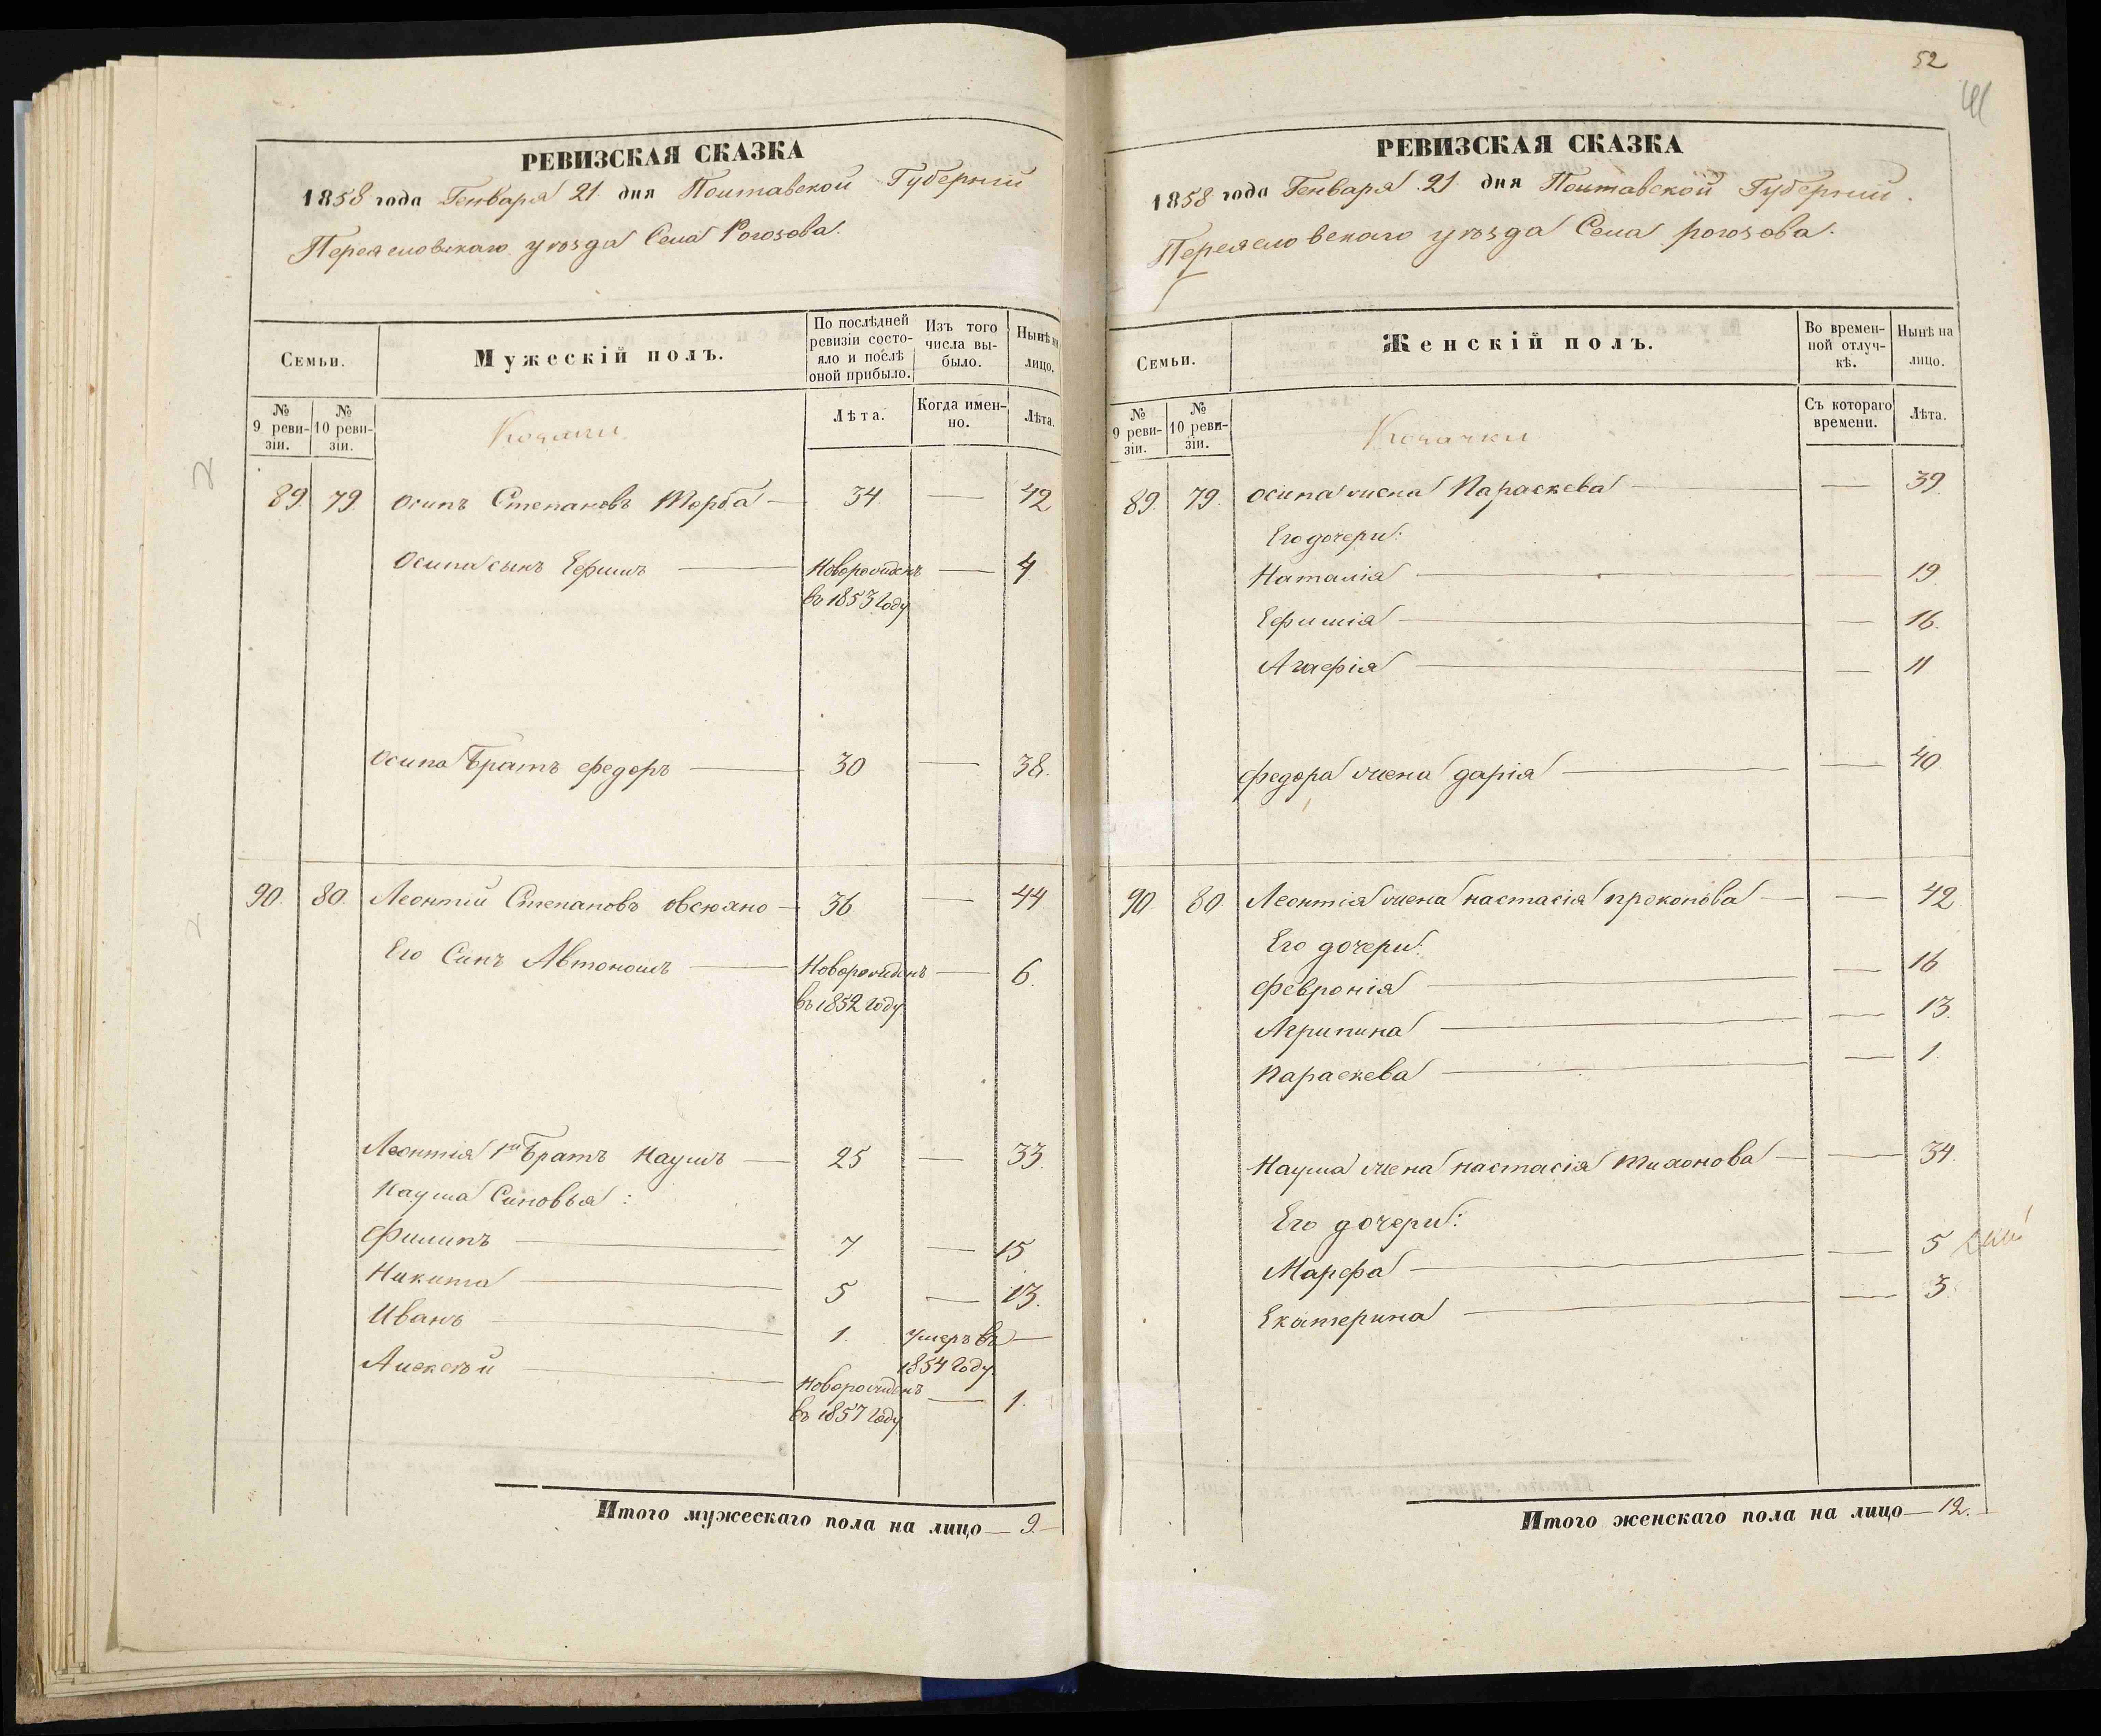 РЕВИЗСКАЯ СКАЗКА
1858 года Генваря 21 дня Полтавской Губернии
Переясловскаго уѣзда Села Рогозова.
Семьи.
Мужескій полъ.
По послѣдней ревизіи состояло и послѣ оной прибыло.
Изъ того числа выбыло.
Нынѣ на лицо.
№ 9 ревизіи.
№ 10 ревизіи.
Козаки
Лѣта.
Когда именно.
Лѣта.
89. 79. Осипъ Степановъ Торба — 34. — 42
Осипа сынъ Ефимъ — Новорожденъ — 4
въ 1853 Году
Осипа Братъ Федоръ — 30 — 38.
90. 80. Леонтій Степановъ Овсюхно — 36 — 44
Его Синъ Автономъ — Новорожденъ — 6.
въ 1852 Году
Леонтія 1й Братъ Наумъ — 25 — 33.
Наума Синовья:
Филипъ — 7 — 15
Никита — 5 — 13.
Иванъ — 1. Умеръ въ —
1854 Году
Алексѣй — Новорожденъ — 1.
въ 1857 Году
Итого мужескаго пола на лицо — 9 —
52
РЕВИЗСКАЯ СКАЗКА
1858 года Генваря 21 дня Полтавской Губернии.
Переясловскаго уѣзда Села рогозова.
Семьи.
Женскій полъ.
Во временной отлучкѣ.
Нынѣ на лицо.
№ 9 ревизіи.
№ 10 ревизіи.
Козачки
Съ котораго времени.
Лѣта.
89. 79. Осипа жена Параскева — — 39.
Его дочери:
Наталія — — 19.
Ефимія — — 16.
Агафія — — 11
Федора жена дарія — — 40
90. 80. Леонтія жена настасія прокопова — — 42
Его дочери:
Феврония — — 16
Агрипина — — 13.
Параскева — — 1.
Наума жена настасія Тихонова — — 34.
Его дочери:
Марфа — — 5
Екатерина — — 3.
Итого женскаго пола на лицо — 12.